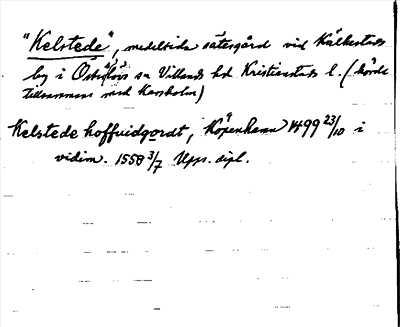 "Kelstede", medeltida sätesgård vid Kälkestads
by i Österslövs sn Villands hd Kristianstads l. (hörde
tillsammans med Karsholm)
Kelstede hoffuidgordt, Köpenhamn 1499 23/10 i
vidim. 1558 3/7 Upps. dipl.